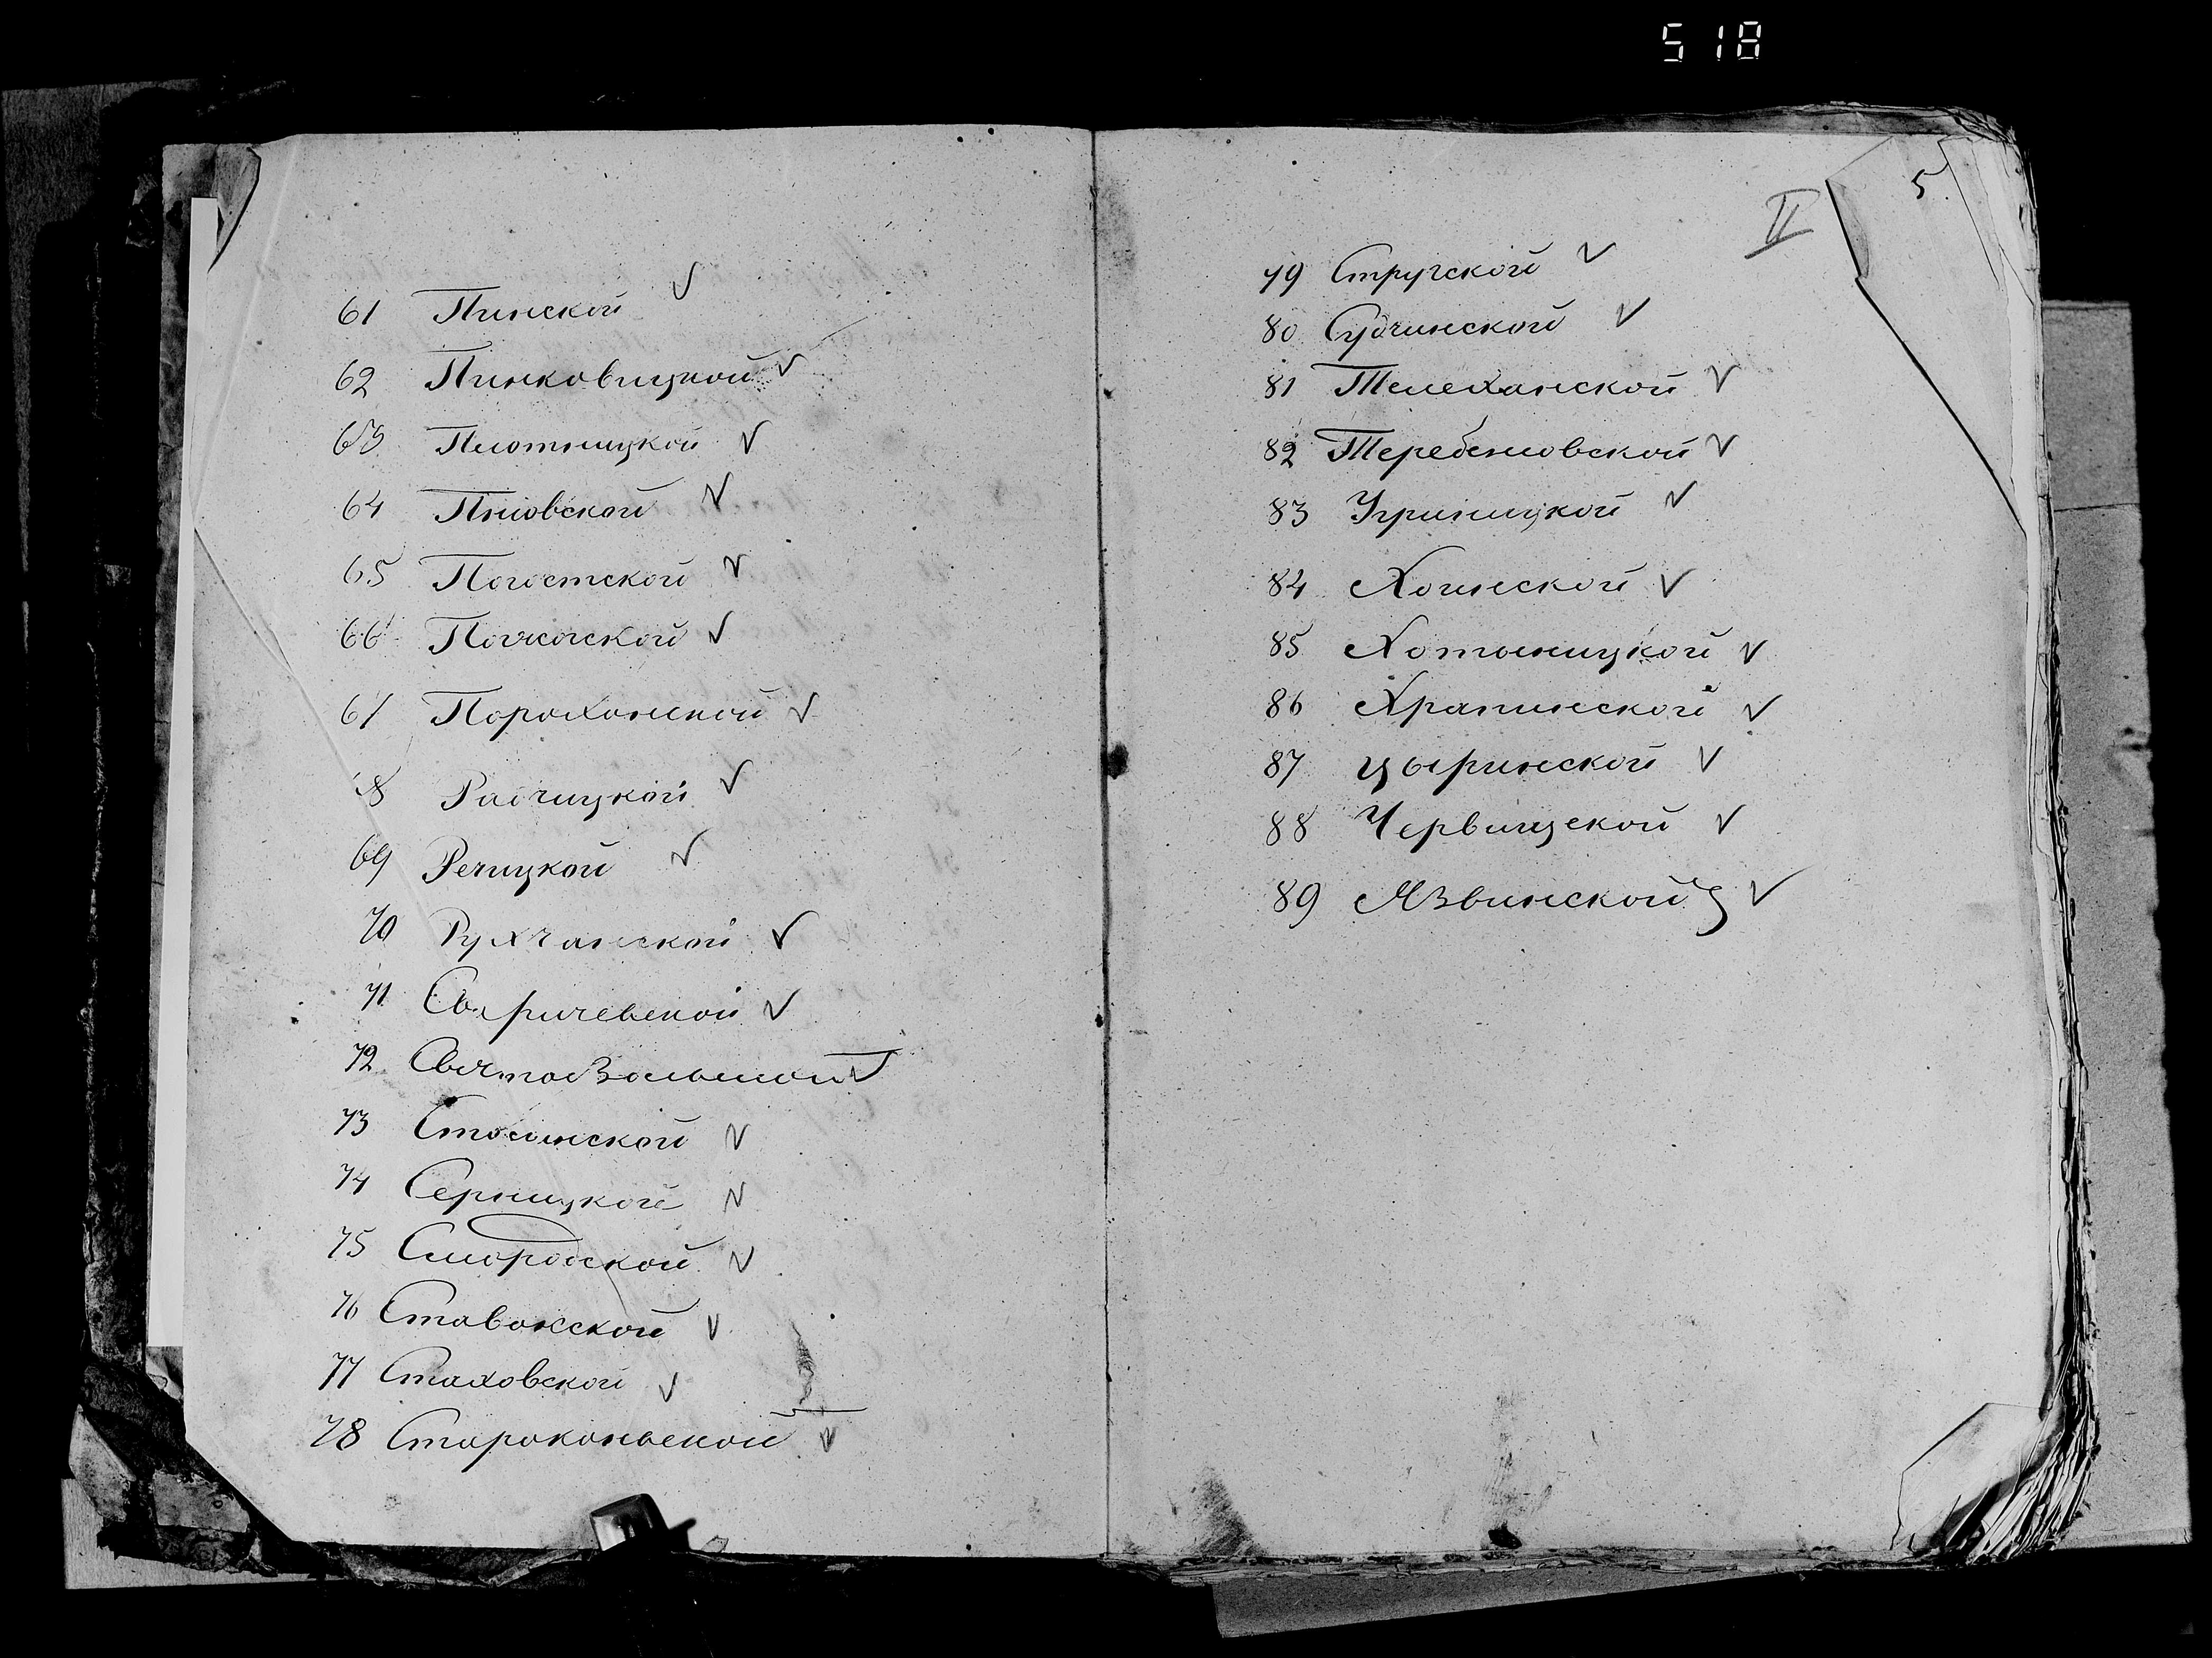 518
61 Пинской
62 Пинковицкой
63 Плотницкой
64 Пніовской
65 Погостской
66 Полжоской
67 Пороховской
68 Радчицкой
69 Речицкой
70 Рухчанской
71 Сваричевской
72 Святовольской
73 Столинской
74 Серницкой
75 Смородской
76 Ставокской
77 Стаховской
78 Староконьской
II 5
79 Стругской
80 Судчинской
81 Телеханской
82 Теребежовской
83 Угриницкой
84 Хоинской
85 Хотыницкой
86 Храпинской
87 Цыринской
88 Червищской
89 Язвинской